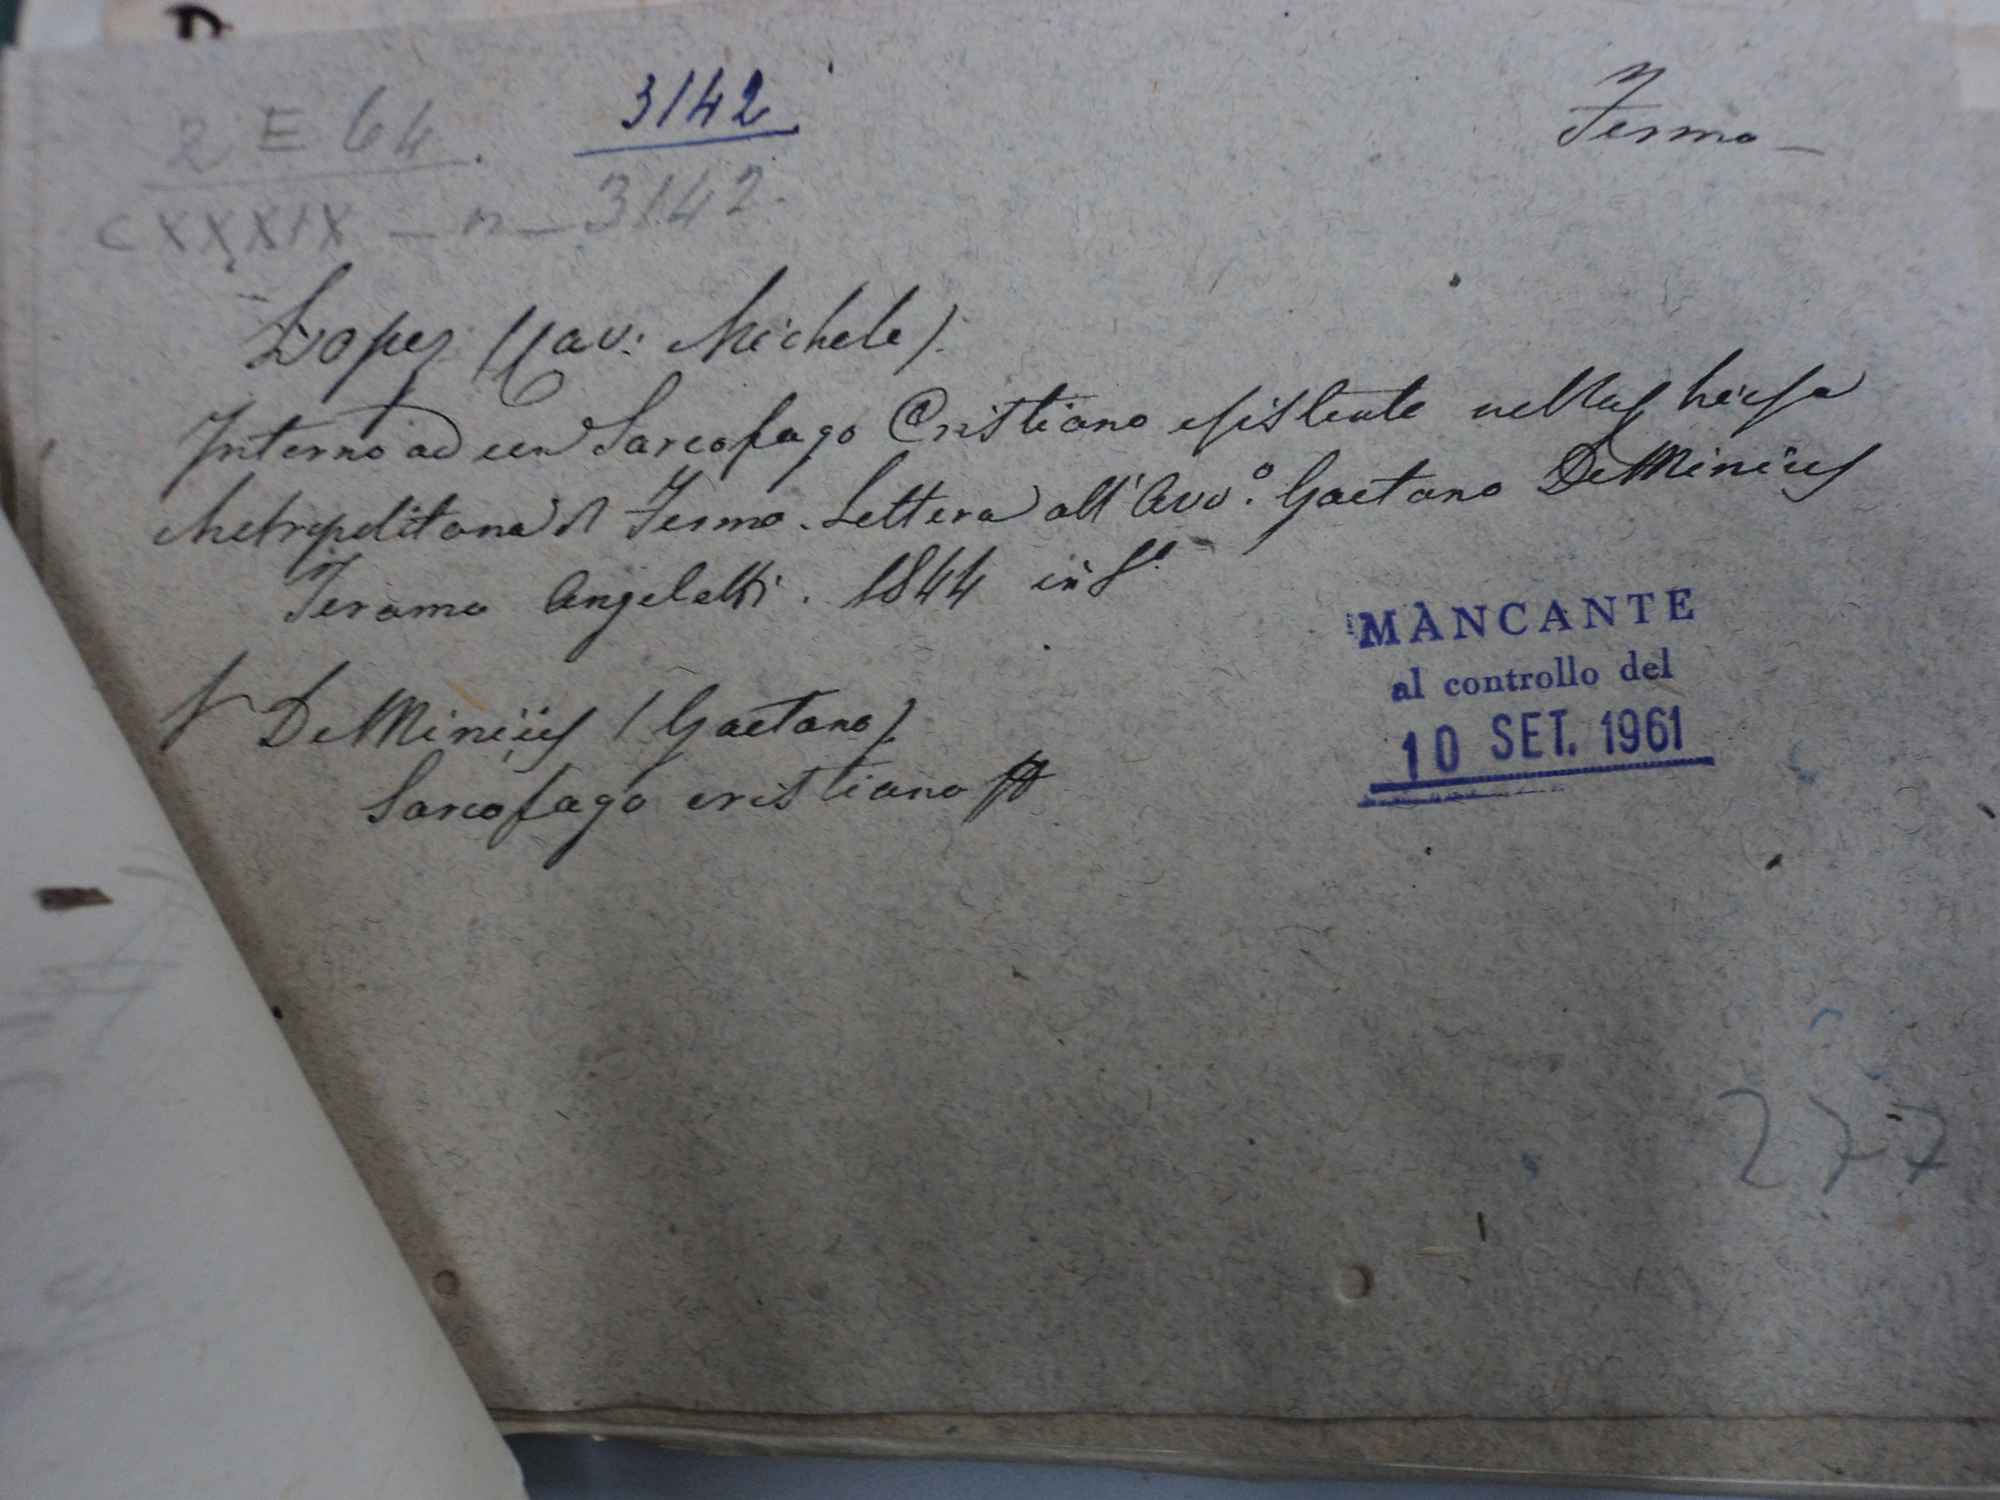 2 E 64
3142
Fermo
CXXXIX - n - 3142.
Lopez (Cav: Michele)
Intorno ad un Sarcofago Cristiano esistente nella Chiesa
Metropolitana di Fermo. Lettera all' Avv.o Gaetano De Minicis
Teramo Angeletti. 1844 in 8°
MANCANTE
al controllo del
10 SET. 1961
De Minicis (Gaetano)
Sarcofago cristiano
277